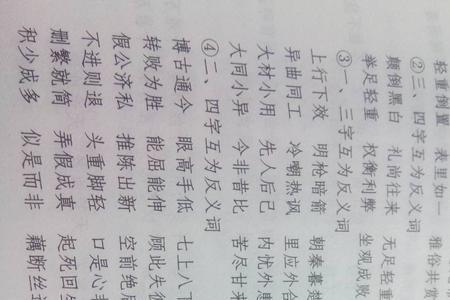 轻重倒置 表里如一 雅俗共
②三、四字互为反义词
颠倒黑白 礼尚往来 无足轻重
举足轻重 权衡利弊 坐观成败
③一、三字互为反义词
上行下效 明枪暗箭 朝秦暮楚
异曲同工 冷嘲热讽 里应外合
大材小用 先人后己 内忧外患
大同小异 今非昔比 苦尽甘来
④二、四字互为反义词
博古通今 眼高手低 七上八下
转败为胜 能屈能伸 顾此失彼
假公济私 推陈出新 空前绝后
不进则退 头重脚轻 口是心非
删繁就简 弄假成真 起死回生
积少成多 似是而非 藕断丝连